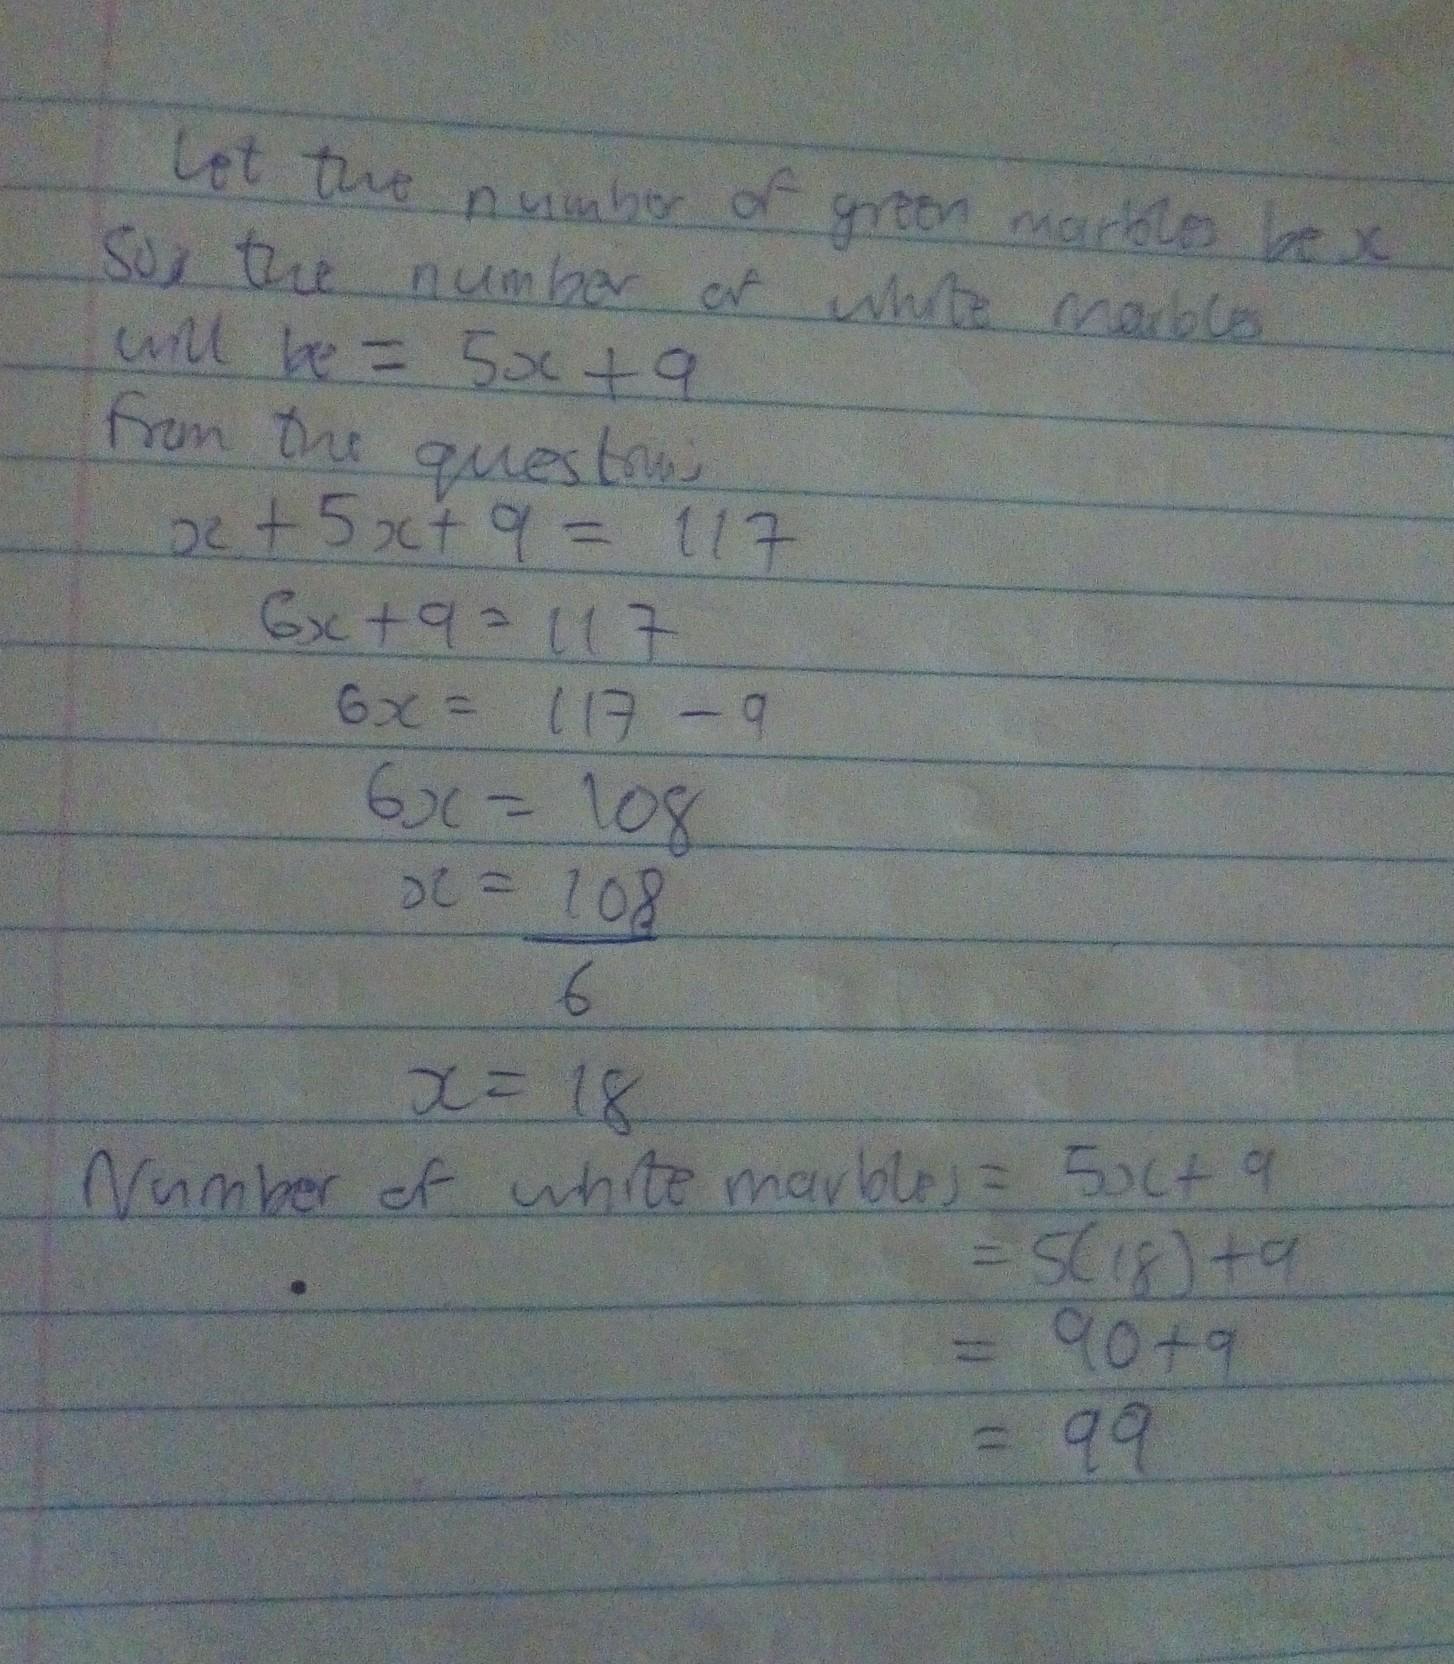 Let the number of green marbles be x
So, the number of white marbles
will be = 5x + 9
From the question;
x + 5x + 9 = 117
6x + 9 = 117
6x = 117 - 9
6x = 108
x = 108
6
x = 18
Number of white marbles = 5x + 9
= 5(18) + 9
= 90 + 9
= 99